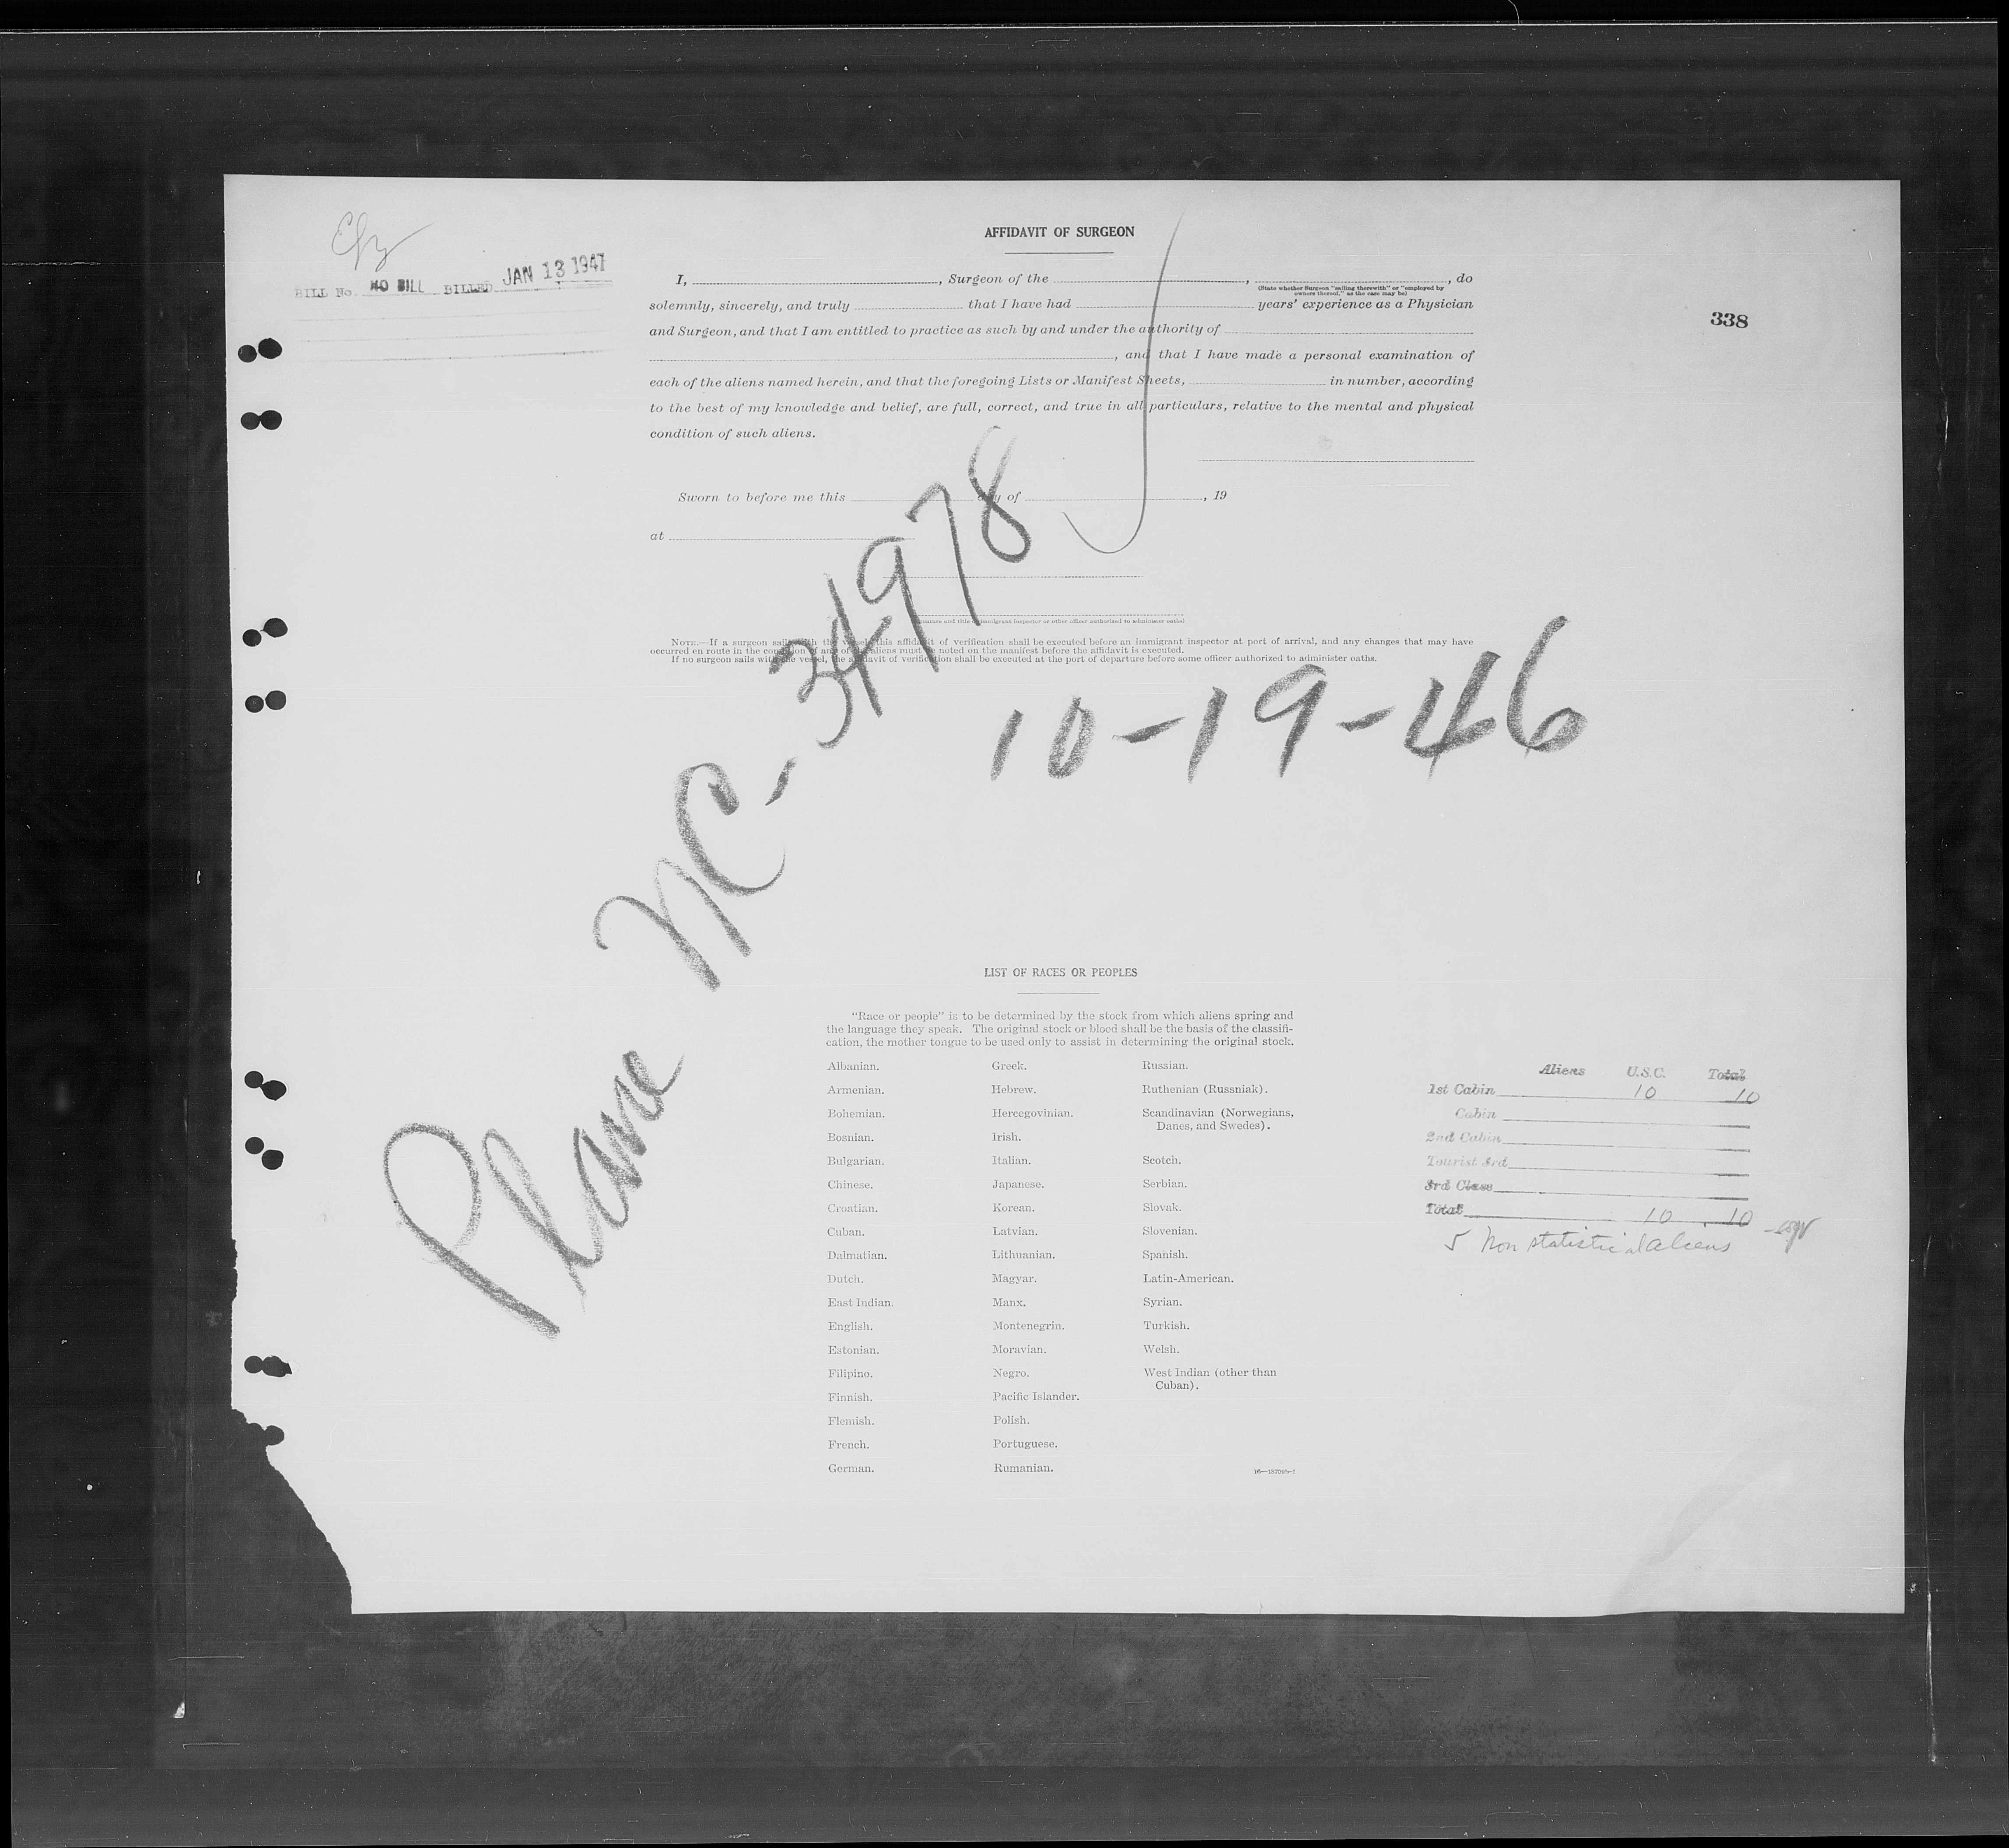 BILL No. NO BILL BILLED JAN 13 1947
338
AFFIDAVIT OF SURGEON
I, , Surgeon of the , , do
(State whether Surgeon "sailing therewith" or "employed by
owners thereof," as the case may be)
solemnly, sincerely, and truly that I have had years' experience as a Physician
and Surgeon, and that I am entitled to practice as such by and under the authority of
, and that I have made a personal examination of
each of the aliens named herein, and that the foregoing Lists or Manifest Sheets, in number, according
to the best of my knowledge and belief, are full, correct, and true in all particulars, relative to the mental and physical
condition of such aliens.
Sworn to before me this day of , 19
at
(Signature and title of immigrant inspector or other officer authorized to administer oaths)
NOTE.—If a surgeon sails with the vessel, this affidavit of verification shall be executed before an immigrant inspector at port of arrival, and any changes that may have
occurred en route in the condition of any of the aliens must be noted on the manifest before the affidavit is executed.
If no surgeon sails with the vessel, the affidavit of verification shall be executed at the port of departure before some officer authorized to administer oaths.
Plane NC-34978
10-19-46
LIST OF RACES OR PEOPLES
"Race or people" is to be determined by the stock from which aliens spring and
the language they speak. The original stock or blood shall be the basis of the classifi-
cation, the mother tongue to be used only to assist in determining the original stock.
Albanian.
Armenian.
Bohemian.
Bosnian.
Bulgarian.
Chinese.
Croatian.
Cuban.
Dalmatian.
Dutch.
East Indian.
English.
Estonian.
Filipino.
Finnish.
Flemish.
French.
German.
Greek.
Hebrew.
Hercegovinian.
Irish.
Italian.
Japanese.
Korean.
Latvian.
Lithuanian.
Magyar.
Manx.
Montenegrin.
Moravian.
Negro.
Pacific Islander.
Polish.
Portuguese.
Rumanian.
Russian.
Ruthenian (Russniak).
Scandinavian (Norwegians,
Danes, and Swedes).
Scotch.
Serbian.
Slovak.
Slovenian.
Spanish.
Latin-American.
Syrian.
Turkish.
Welsh.
West Indian (other than
Cuban).
Aliens U.S.C. Total
1st Cabin 10 10
Cabin
2nd Cabin
Tourist 3rd
3rd Class
Total 10 10
5 Non statistical aliens